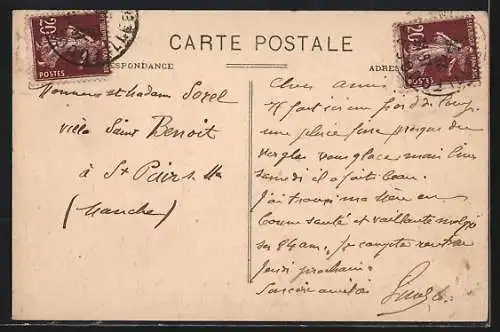 CARTE POSTALE
CORRESPONDANCE
ADRES
20c
POSTES
20c
POSTES
Monsieur et Madam Sorel
villa Saint Benoit
à St Pair s. M
(Manche)
Cher amis
Il fait ici un froid de loup
une pluie fine presque du
verglas vous glace mais hier
samedi il a fait beau.
J'ai trouvé ma mère en
bonne santé et vaillante malgré
ses 84 ans. Je compte rentrer
Jeudi prochain.